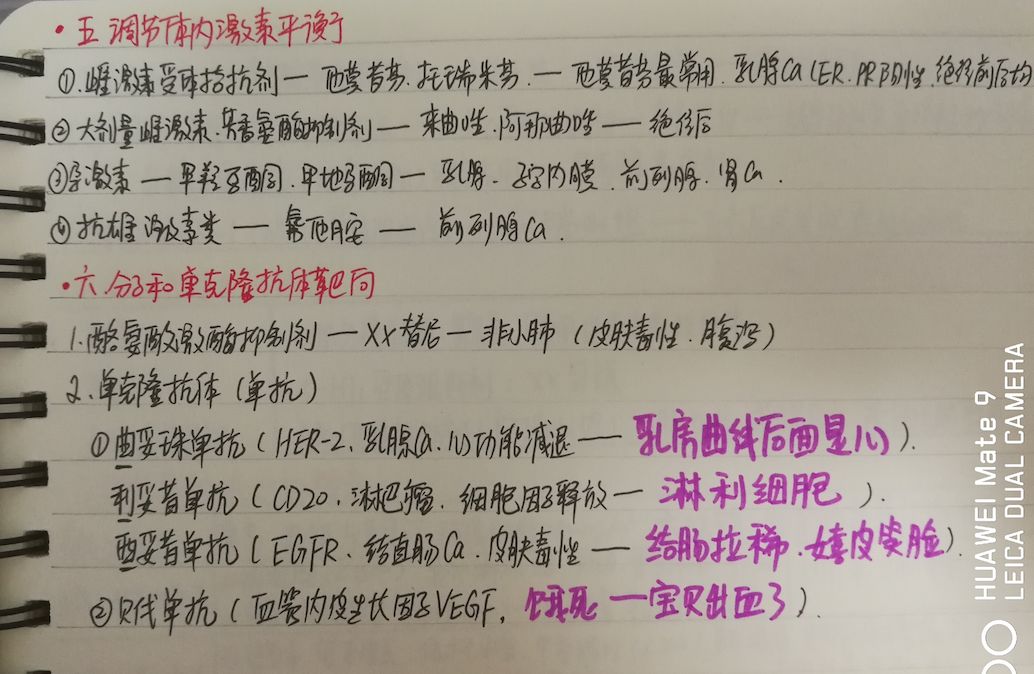 •五 调节体内激素平衡
①.雌激素受体拮抗剂—他莫昔芬.托瑞米芬.—他莫昔芬最常用.乳腺Ca(ER.PR阳性.绝经前后均
②大剂量雌激素.芳香氨酶抑制剂—来曲唑.阿那曲唑—绝经后
③孕激素—甲羟孕酮.甲地孕酮—乳腺.子宫内膜.前列腺.肾Ca.
④抗雄激素类—氟他胺—前列腺Ca.
•六.分子和单克隆抗体靶向
1.酪氨酸激酶抑制剂—XX替尼—非小肺(皮肤毒性.腹泻)
2.单克隆抗体(单抗)
①曲妥珠单抗(HER-2.乳腺Ca.心功能减退—乳房曲线后面是心).
利妥昔单抗(CD20.淋巴瘤.细胞因子释放—淋利细胞).
西妥昔单抗(EGFR.结直肠Ca.皮肤毒性—结肠拉稀.嬉皮笑脸).
②贝伐单抗(血管内皮生长因子VEGF,饿死—宝贝出血了).
HUAWEI Mate 9
LEICA DUAL CAMERA